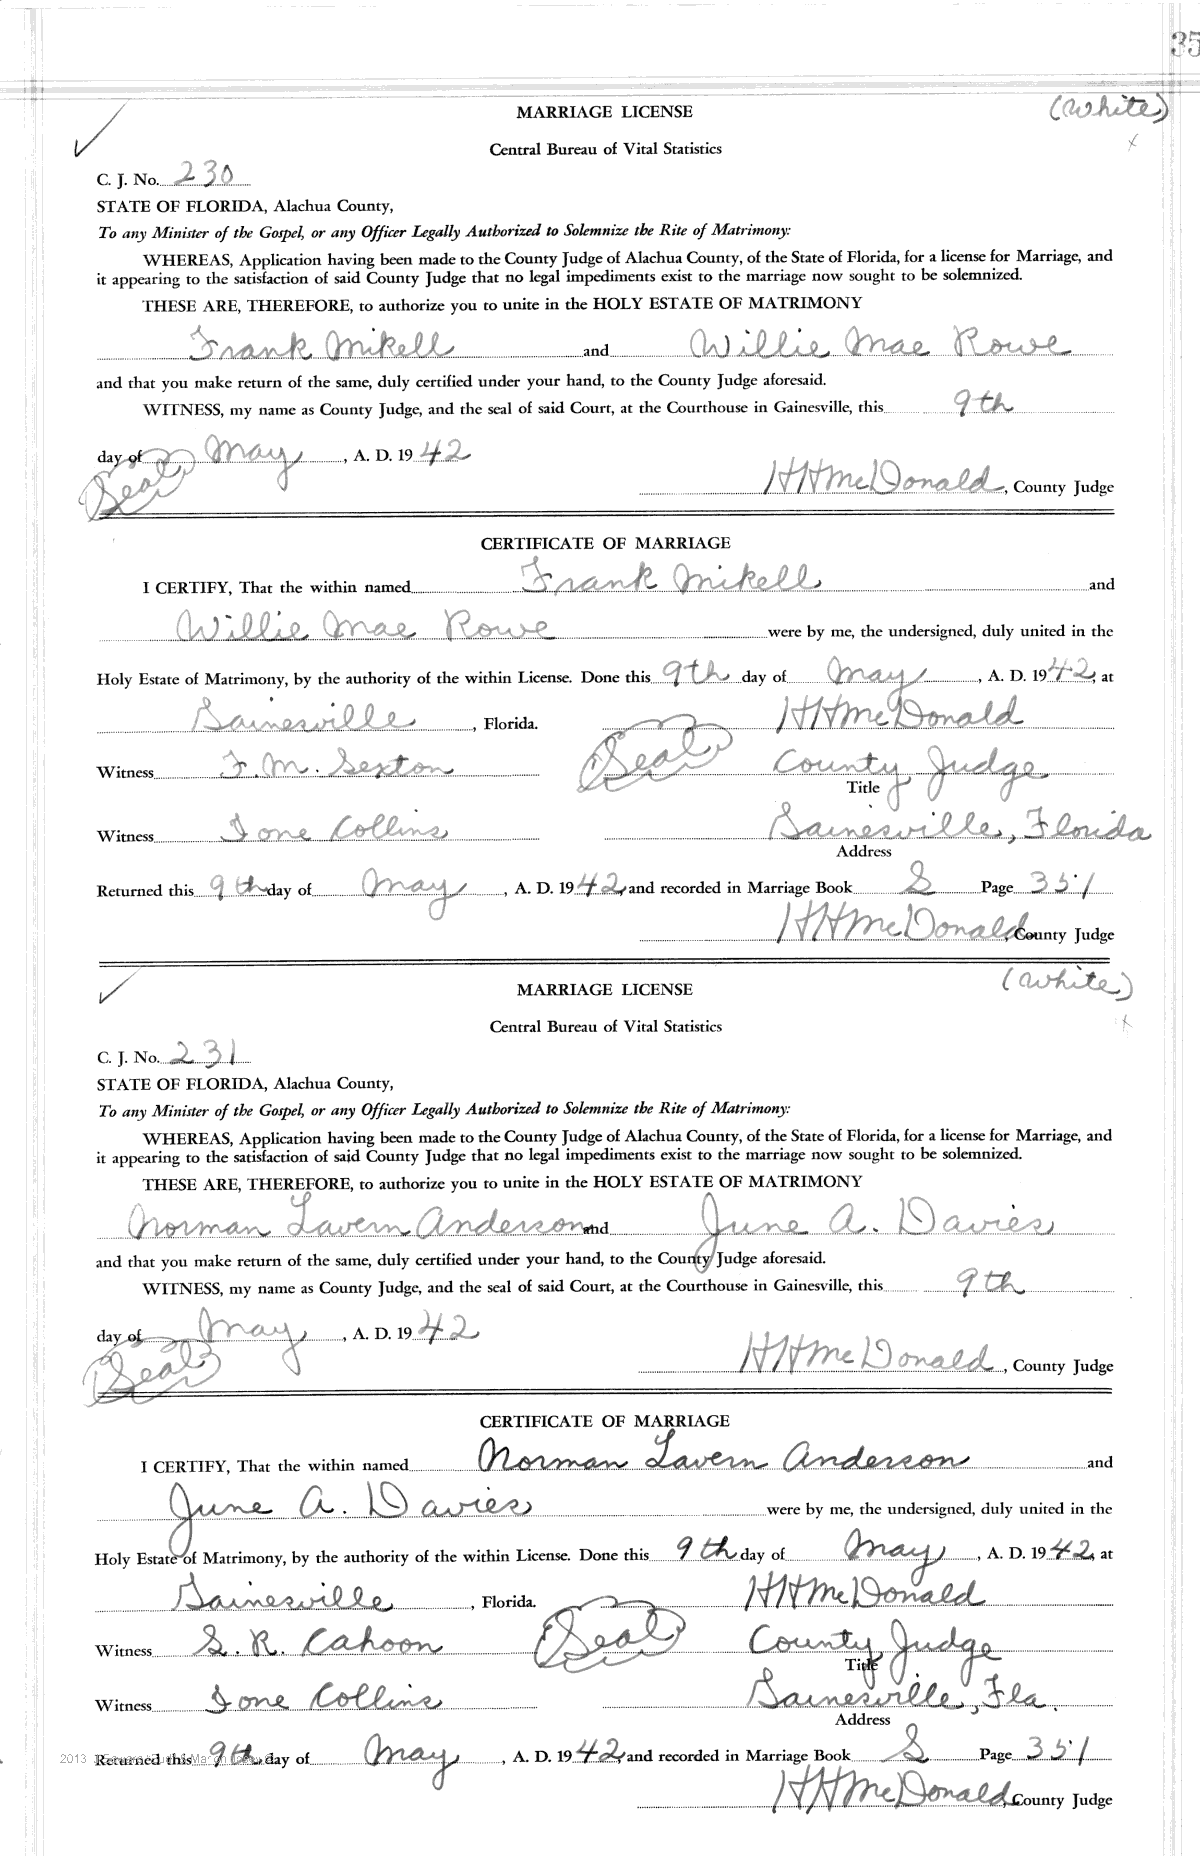 35
MARRIAGE LICENSE (White)
Central Bureau of Vital Statistics
C. J. No. 230
STATE OF FLORIDA, Alachua County,
To any Minister of the Gospel, or any Officer Legally Authorized to Solemnize the Rite of Matrimony:
WHEREAS, Application having been made to the County Judge of Alachua County, of the State of Florida, for a license for Marriage, and
it appearing to the satisfaction of said County Judge that no legal impediments exist to the marriage now sought to be solemnized.
THESE ARE, THEREFORE, to authorize you to unite in the HOLY ESTATE OF MATRIMONY
Frank Mikell and Willie Mae Rowe
and that you make return of the same, duly certified under your hand, to the County Judge aforesaid.
WITNESS, my name as County Judge, and the seal of said Court, at the Courthouse in Gainesville, this 9th
day of May, A. D. 1942
Seal HHMcDonald, County Judge
CERTIFICATE OF MARRIAGE
I CERTIFY, That the within named Frank Mikell and
Willie Mae Rowe were by me, the undersigned, duly united in the
Holy Estate of Matrimony, by the authority of the within License. Done this 9th day of May, A. D. 1942, at
Gainesville, Florida. HHMcDonald
Witness F. M. Sexton Seal County Judge
Title
Witness Ione Collins Gainesville, Florida
Address
Returned this 9th day of May, A. D. 1942, and recorded in Marriage Book S Page 351
HHMcDonald, County Judge
MARRIAGE LICENSE (White)
Central Bureau of Vital Statistics
C. J. No. 231
STATE OF FLORIDA, Alachua County,
To any Minister of the Gospel, or any Officer Legally Authorized to Solemnize the Rite of Matrimony:
WHEREAS, Application having been made to the County Judge of Alachua County, of the State of Florida, for a license for Marriage, and
it appearing to the satisfaction of said County Judge that no legal impediments exist to the marriage now sought to be solemnized.
THESE ARE, THEREFORE, to authorize you to unite in the HOLY ESTATE OF MATRIMONY
Norman Lavern Anderson and June A. Davies
and that you make return of the same, duly certified under your hand, to the County Judge aforesaid.
WITNESS, my name as County Judge, and the seal of said Court, at the Courthouse in Gainesville, this 9th
day of May, A. D. 1942
Seal HHMcDonald, County Judge
CERTIFICATE OF MARRIAGE
I CERTIFY, That the within named Norman Lavern Anderson and
June A. Davies were by me, the undersigned, duly united in the
Holy Estate of Matrimony, by the authority of the within License. Done this 9th day of May, A. D. 1942, at
Gainesville, Florida. HHMcDonald
Witness S. R. Cahoon Seal County Judge
Title
Witness Ione Collins Gainesville, Fla.
Address
2013
Returned this 9th day of May, A. D. 1942, and recorded in Marriage Book S Page 351
HHMcDonald, County Judge